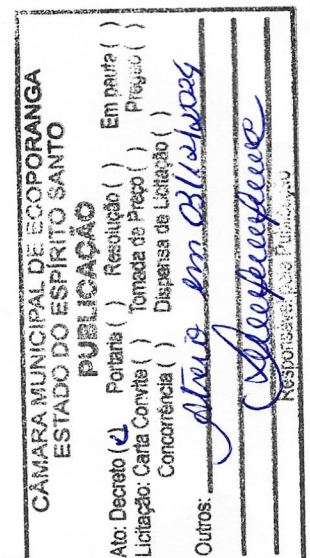 CÂMARA MUNICIPAL DE ECOPORANGA
ESTADO DO ESPÍRITO SANTO
PUBLICAÇÃO
Ato: Decreto (✓) Portaria ( ) Resolução ( ) Em pauta ( )
Licitação: Carta Convite ( ) Tomada de Preço ( ) Pregão ( )
Concorrência ( ) Dispensa de Licitação ( )
Outros: em 03/12/2024
Responsável pela Publicação